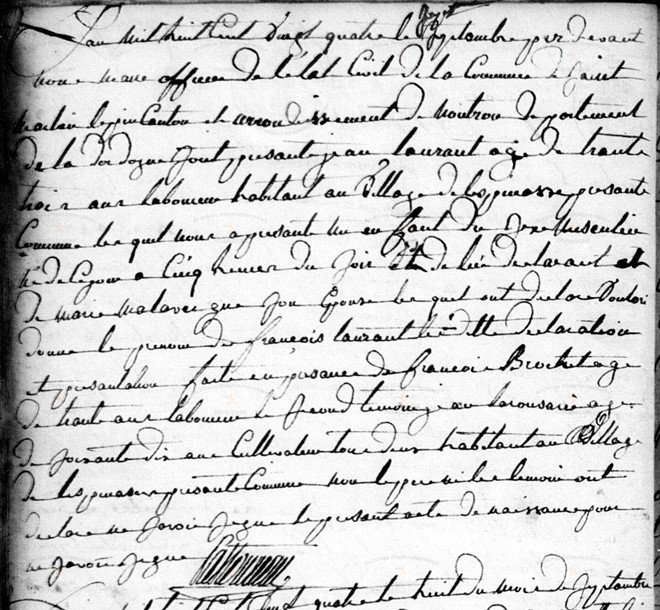 Lan mil huit Cent Vingt quatre le Sept Septembre par devant
nous maire officier de l'état Civil de la Commune de saint
martin le pin Canton et arrondissement de nontron departement
de la dordogne sont presanté jean laurant age de trante
trois ans laboureur habitant au Village de presante
Commune lequel nous a presante un enfant du sexe masculin
né de Cejour a Cinq heures du soir de lui declarant et
de marie malavergne son Epouse lequel ont declare Vouloir
donne le prenom de francois laurant la ditte declaration
et presantation faite en presance de francois Brochet age
de trante ans laboureur le second temoin age
de soixante dix ans Cultivateur tous deux habitant au Village
de presante Commune nous le pere et les temoin ont
declare ne savoir signe le presant acte de naissance pour
ne savoir signe
quatre le huit du mois de Septembre